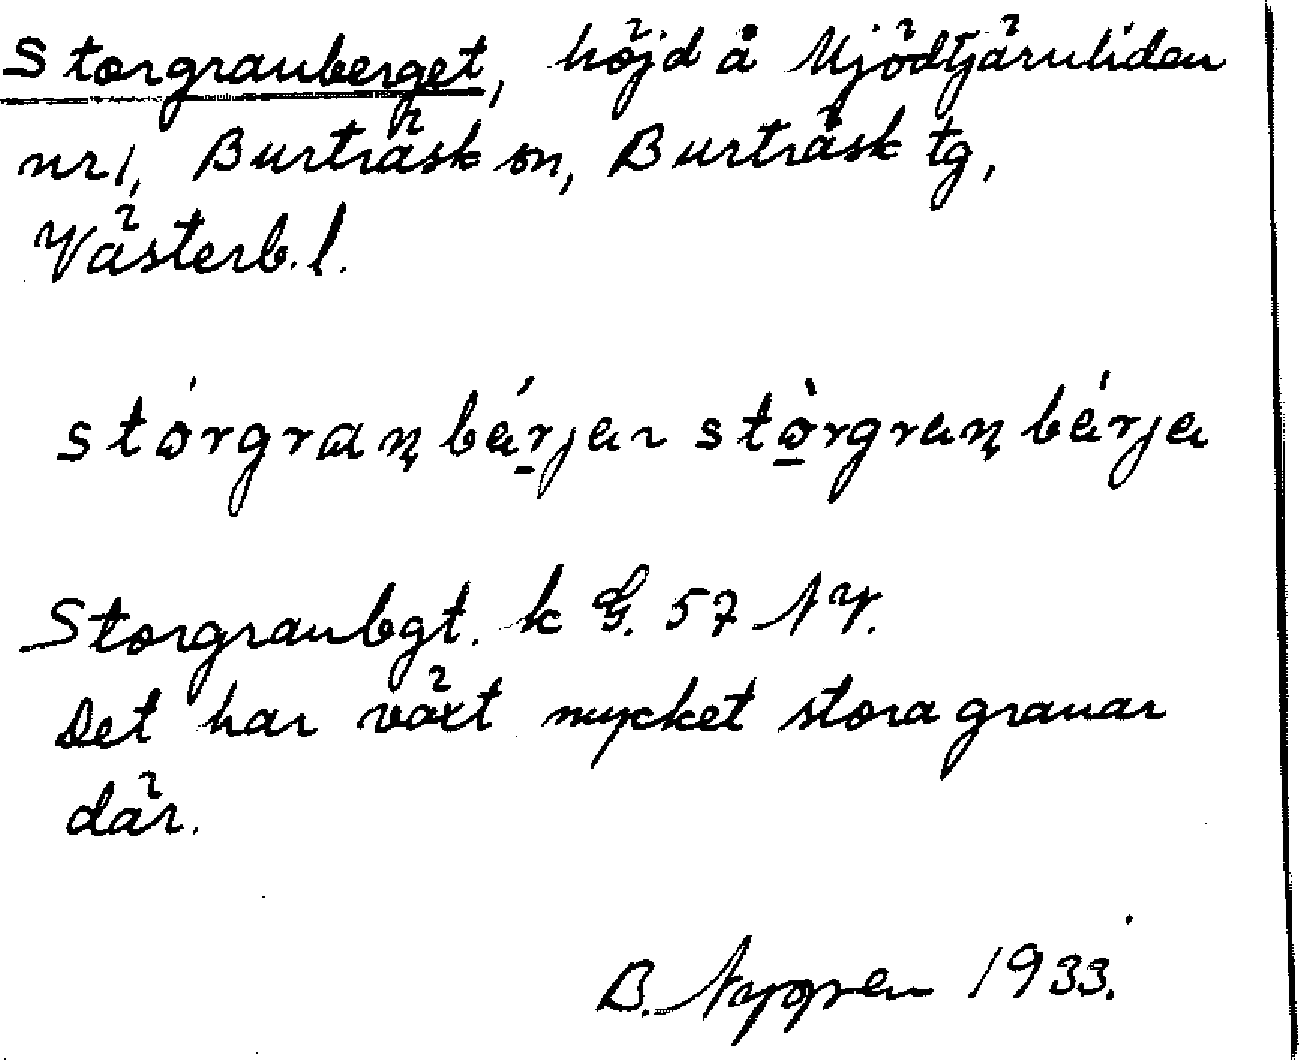 Storgranberget, höjd å Mjödtjärnliden
nr 1, Burträsk sn, Burträsk tg,
Västerb. l.
stórgranbérjer stòrgranbérje
Storgranbgt. k G. 57 NV.
Det har växt mycket stora granar
där.
B. Nygren 1933.